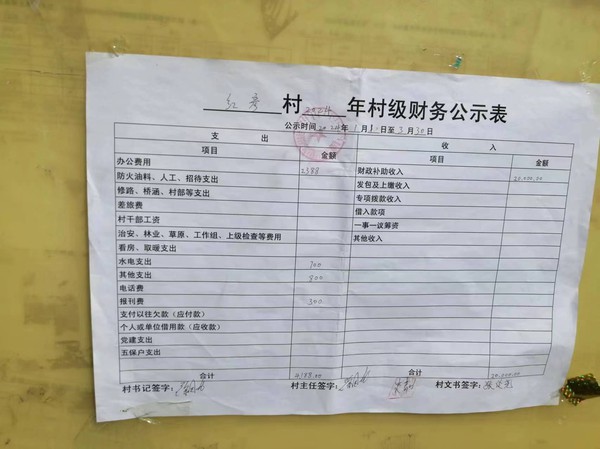 村2024年村级财务公示表
公示时间2024年1月1日至3月30日
支 出 收 入
项目 金额 项目 金额
办公费用 2388 财政补助收入 20,000.00
防火油料、人工、招待支出 发包及上缴收入
修路、桥涵、村部等支出 专项拨款收入
差旅费 借入款项
村干部工资 一事一议筹资
治安、林业、草原、工作组、上级检查等费用 其他收入
看房、取暖支出
水电支出 700
其他支出 800
电话费
报刊费 300
支付以往欠款（应付款）
个人或单位借用款（应收款）
党建支出
五保户支出
合计 4,188.00 合计 20,000.00
村书记签字： 村主任签字： 村文书签字：